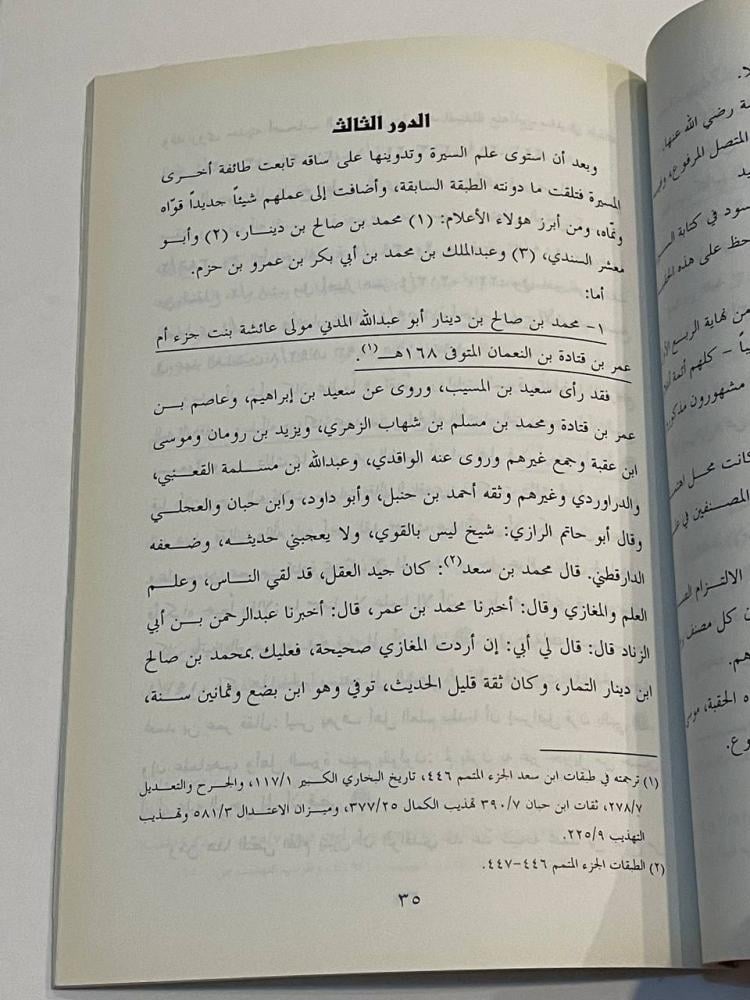 الدور الثالث
وبعد أن استوى علم السيرة وتدوينها على ساقه تابعت طائفة أخرى
المسيرة فتلقت ما دونته الطبقة السابقة، وأضافت إلى عملهم شيئاً جديداً قوّاه
ونمّاه، ومن أبرز هؤلاء الأعلام: (١) محمد بن صالح بن دينار، (٢) وأبو
معشر السندي، (٣) وعبدالملك بن محمد بن أبي بكر بن عمرو بن حزم.
أما:
١- محمد بن صالح بن دينار أبو عبدالله المدني مولى عائشة بنت جزء أم
عمر بن قتادة بن النعمان المتوفى ١٦٨هـ(١).
فقد رأى سعيد بن المسيب، وروى عن سعيد بن إبراهيم، وعاصم بن
عمر بن قتادة ومحمد بن مسلم بن شهاب الزهري، ويزيد بن رومان وموسى
ابن عقبة وجمع غيرهم وروى عنه الواقدي، وعبدالله بن مسلمة القعنبي،
والدراوردي وغيرهم وثقه أحمد بن حنبل، وأبو داود، وابن حبان والعجلي
وقال أبو حاتم الرازي: شيخ ليس بالقوي، ولا يعجبني حديثه، وضعفه
الدارقطني. قال محمد بن سعد(٢): كان جيد العقل، قد لقي الناس، وعلم
العلم والمغازي وقال: أخبرنا محمد بن عمر، قال: أخبرنا عبدالرحمن بن أبي
الزناد قال: قال لي أبي: إن أردت المغازي صحيحة، فعليك بمحمد بن صالح
ابن دينار التمار، وكان ثقة قليل الحديث، توفي وهو ابن بضع وثمانين سنة،
(١) ترجمته في طبقات ابن سعد الجزء المتمم ٤٤٦، تاريخ البخاري الكبير ١١٧/١، والجرح والتعديل
٢٧٨/٧، ثقات ابن حبان ٣٩٠/٧ تهذيب الكمال ٣٧٧/٢٥، وميزان الاعتدال ٥٨١/٣ وتهذيب
التهذيب ٢٢٥/٩.
(٢) الطبقات الجزء المتمم ٤٤٦-٤٤٧.
٣٥
ة رضي الله عنها.
المتصل المرفوع،
سود في كتابة
حظ على هذه
من نهاية الربع
كلهم أئمة
مشهورون
كانت محل
المصنفين في
الالتزام
ن كل مصنف
هم.
ه الحقبة،
وع.